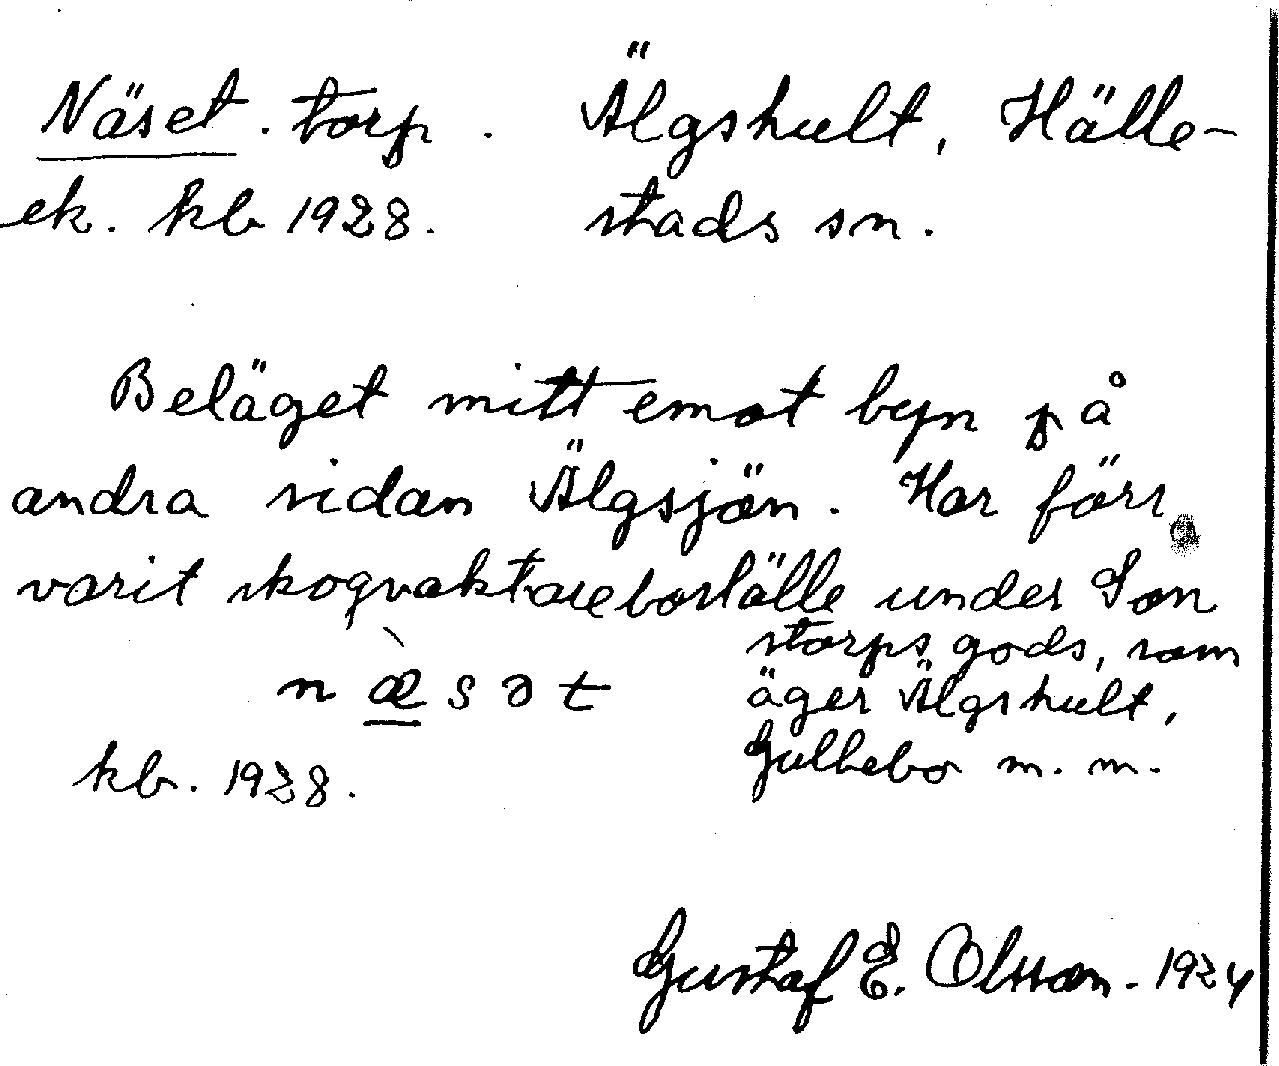 Näset. torp. Älgshult, Hälle-
ek. kb 1928. stads sn.
Beläget mitt emot byn på
andra sidan Älgsjön. Har förr
varit skogvaktareboställe under Son
storps gods, som
äger Älgshult,
Gullebo m. m.
næ̀sət
kb. 1928.
Gustaf E. Olsson. 1924